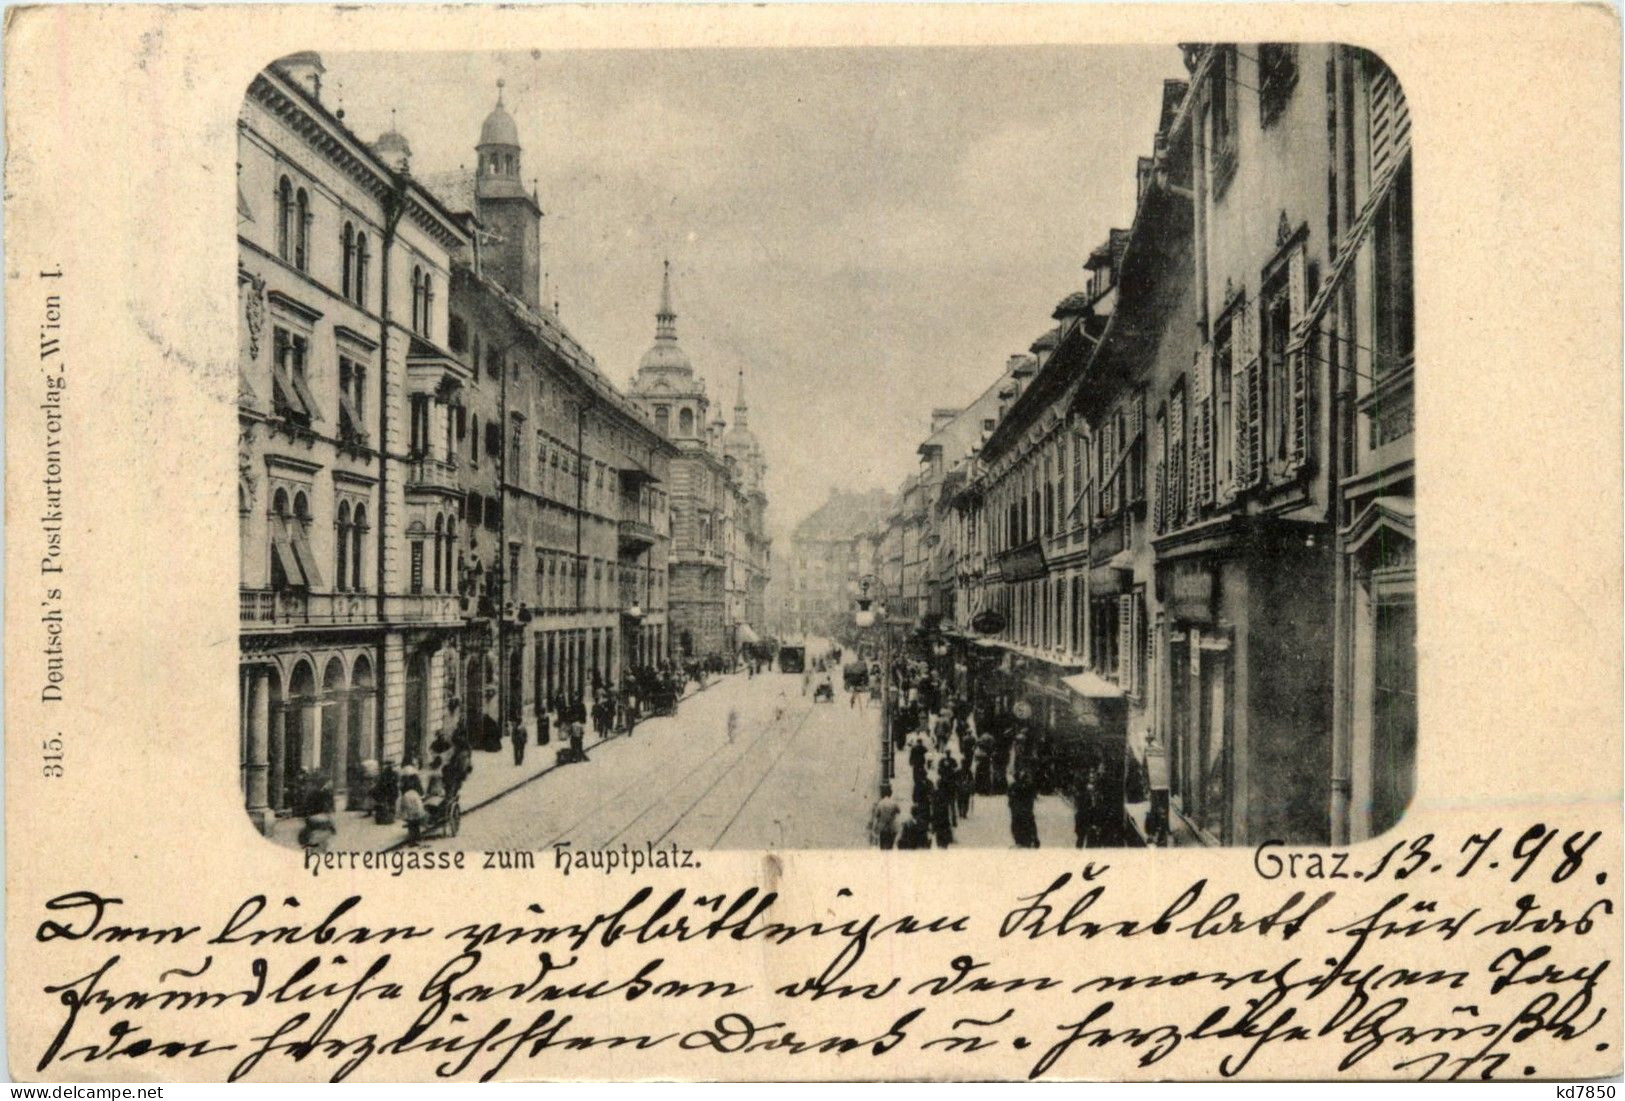 315. Deutsch's Postkartonverlag_Wien I.
Herrengasse zum Hauptplatz.
Graz. 13.7.98.
Dem lieben vierblättrigen Kleeblatt für das
freundliche Gedenken an den morgigen Tag
den herzlichsten Dank u. herzliche Grüße.
M.
kd7850